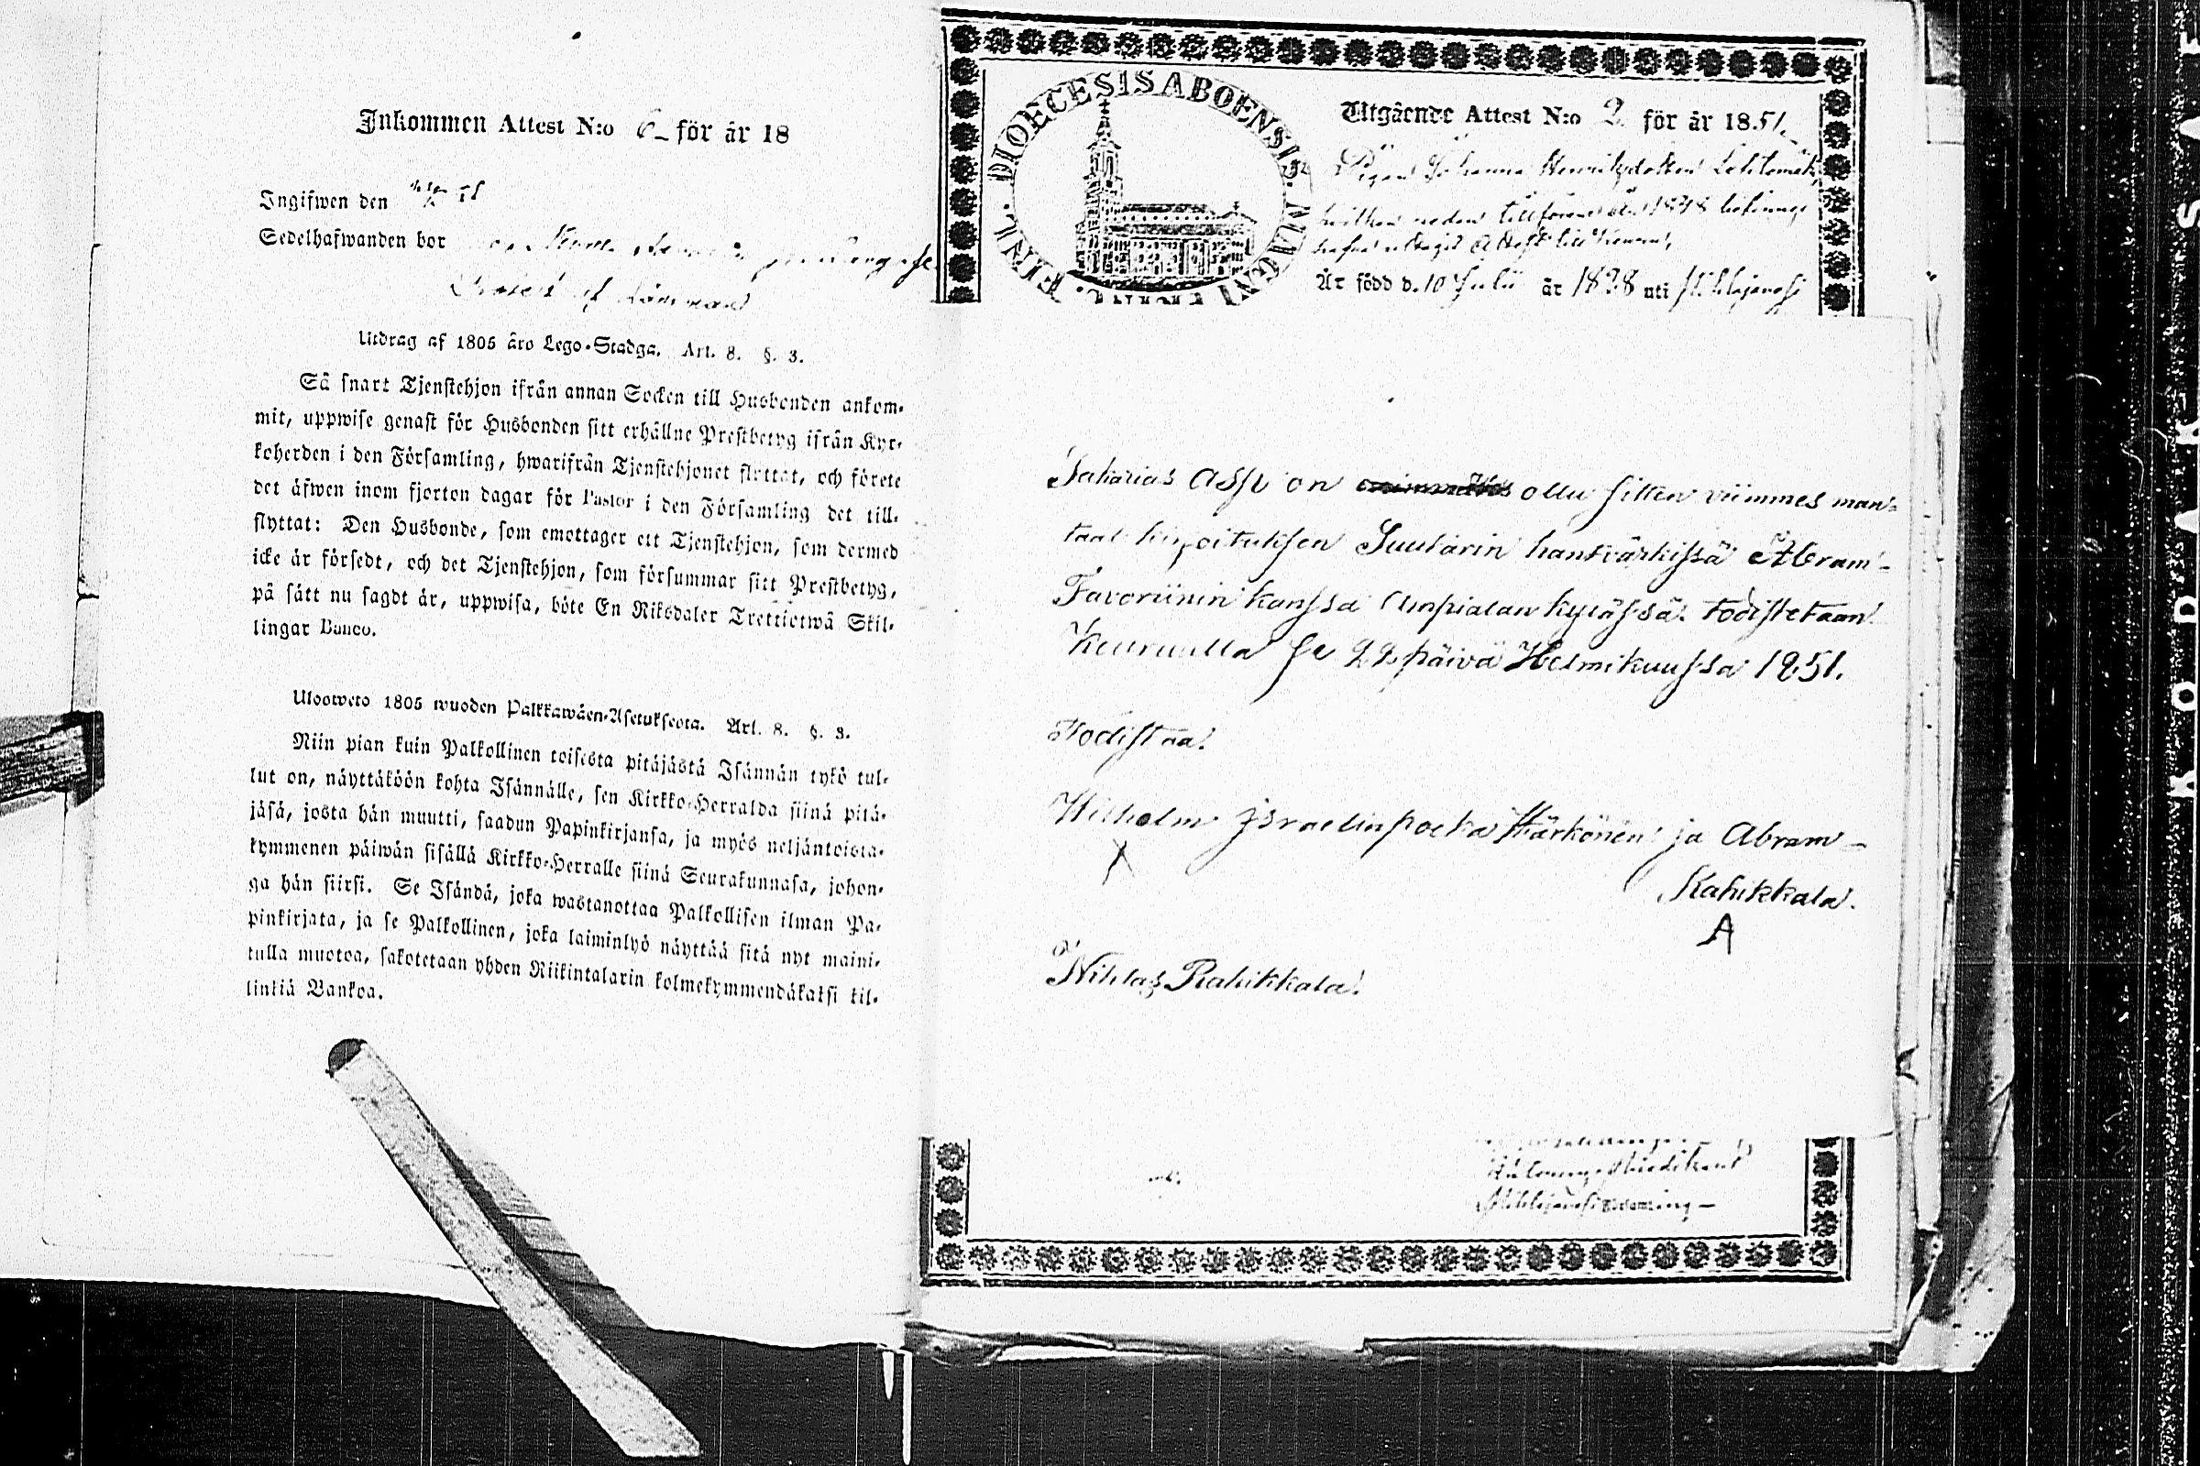 Inkommen Attest N:o 6 för år 18
Ingifwen den
Sedelhafwanden bor
Utdrag af 1805 års Lego-Stadga. Art. 8. §. 3.
Så snart Tjenstehjon ifrån annan Socken till Husbonden ankom-
mit, uppwise genast för Husbonden sitt erhållne Prestbetyg ifrån Kyr-
koherden i den Församling, hwarifrån Tjenstehjonet flyttat, och förete
det äfwen inom fjorton dagar för Pastor i den Församling det till-
flyttat: Den Husbonde, som emottager ett Tjenstehjon, som dermed
icke är försedt, och det Tjenstehjon, som försummar sitt Prestbetyg,
på sätt nu sagdt är, uppwisa, böte En Riksdaler Trettiotwå Skil-
lingar Banco.
Ulosweto 1805 wuoden Palkkawäen-Asetuksesta. Art. 8. §. 3.
Niin pian kuin Palkollinen toisesta pitäjästä Isännän tykö tul-
lut on, näyttäköön kohta Isännälle, sen Kirkko-Herralda siinä pitä-
jäsä, josta hän muutti, saadun Papinkirjansa, ja myös neljäntoista-
kymmenen päiwän sisällä Kirkko-Herralle siinä Seurakunnasa, johon-
ga hän siirsi. Se Isändä, joka wastanottaa Palkollisen ilman Pa-
pinkirjata, ja se Palkollinen, joka laiminlyö näyttää sitä nyt maini-
tulla muotoa, sakotetaan yhden Riikintalarin kolmekymmendäkaksi kil-
linkiä Bankoa.
DIOECESIS ABOENSIS. MAGNI FINL.
Utgående Attest N:o 2 för år 1851.
Pigan Johanna Henriksdotter Lehtomäki,
hvilken redan tillförene år 1848 befinnes
hafva uttagit Attest till Keuru,
Är född d. 10 Julii år 1828 uti
Sakarias Assi on ollu sitten viimmes man-
taal kirjoituksen Suutarin hantvärkissä Abram-
Favoriinin kanssa Ampialan kylässä. todistetaan
Keuruulla se 22 päivä Helmikuussa 1851.
Todistaa.
Wilhelm Jsraelinpoeka Härkönen ja Abram-
X
Rahikkala.
A
Niklas Rahikkala.